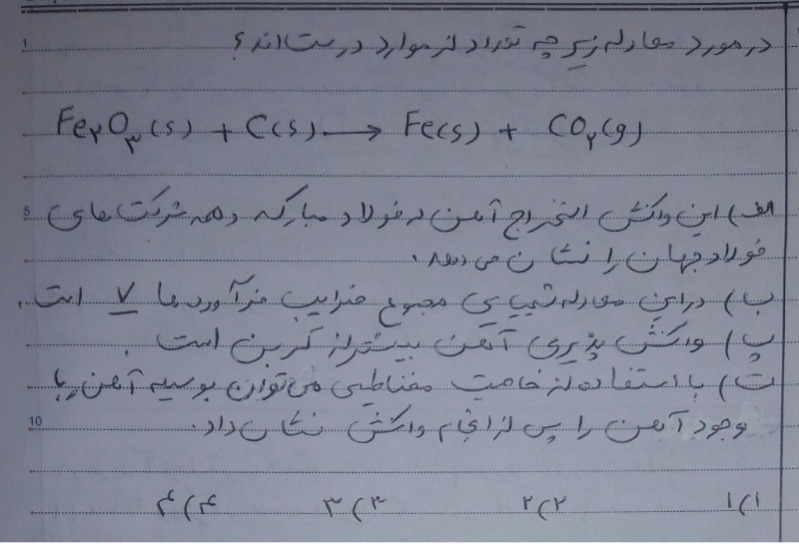 در مورد معادله زیر چه تعداد از موارد درست‌اند؟
Fe۲O۳(s) + C(s) → Fe(s) + CO۲(g)
الف) این واکنش استخراج آهن در فولاد مبارکه و همه شرکت‌های
فولاد جهان را نشان می‌دهد.
ب) در این معادله شیمیایی مجموع ضرایب فرآورده‌ها ۷ است.
پ) واکنش پذیری آهن بیشتر از کربن است.
ت) با استفاده از خاصیت مغناطیسی می‌توان بوسیله آهن‌ربا
وجود آهن را پس از انجام واکنش نشان داد.
۱) ۱ ۲) ۲ ۳) ۳ ۴) ۴
1
5
10